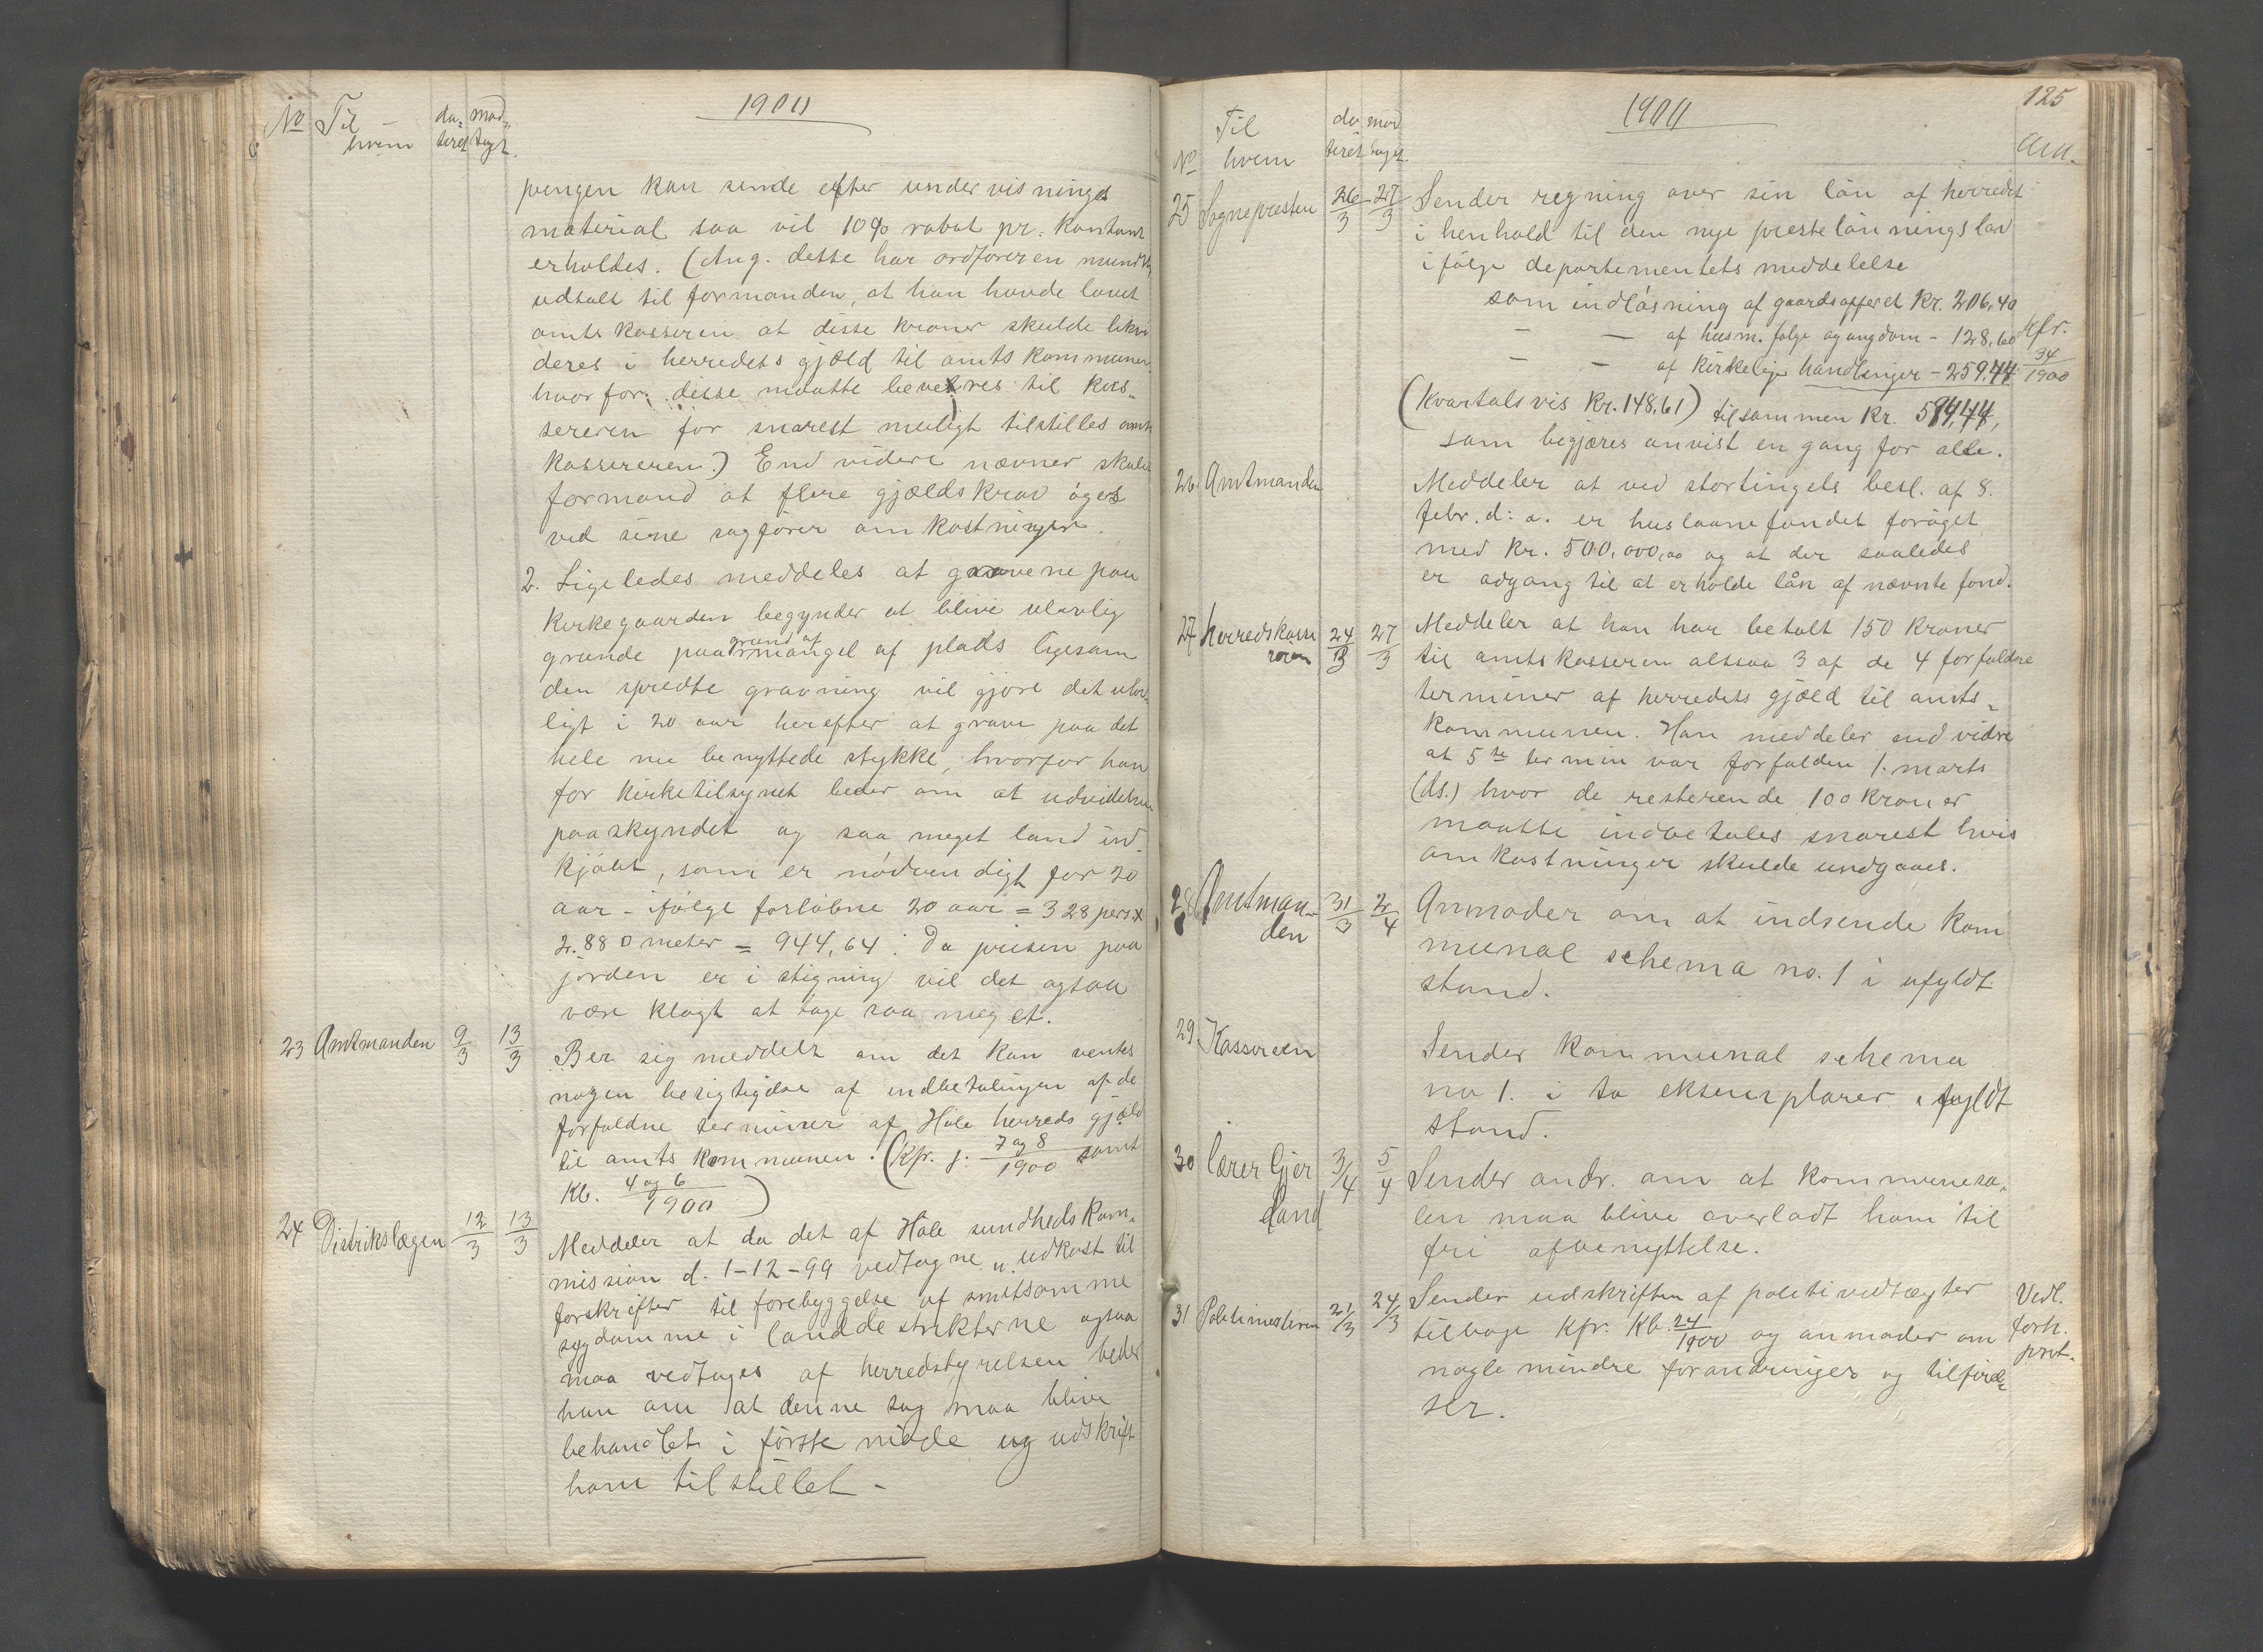 1900
No Til hvem da-teret mod-taget.
pengen kan sende efter undervisnings
material saa vil 10% rabat pr. kontant
erholdes. (Ang. dette har ordføreren mundtlig
udtalt til formanden, at han havde lovet
amtskasseren at disse kroner skulde likvi
deres i herredets gjæld til amtskommunen,
hvorfor disse maatte leveres til kas-
sereren for snarest muligt tilstilles amts
kassereren.) End videre nævner skole
formand at flere gjældskrav øges
ved sine sagfører omkostninger.
2. Ligeledes meddeles at gravene paa
kirkegaarden begynder at blive ulovlig
grunde paa grund af mangel af plads ligesom
den spredte gravning vil gjøre det ulov-
ligt i 20 aar herefter at grave paa det
hele nu benyttede stykke, hvorfor han
for kirketilsynet beder om at udvidelsen
paaskyndet og saa meget land ind-
kjøbt, som er nødvendigt for 20
aar - ifølge forløbne 20 aar = 328 pers. x
2.88 □ meter = 944,64. Da prisen paa
jorden er i stigning vil det ogsaa
være klogt at tage saa meget.
23 Amtmanden 9/3 13/3 Ber sig meddelt om det kan ventes
nogen besigtigelse af indbetalingen af de
forfaldne terminer af Hole herreds gjæld
til amtskommunen. (Kfr. j. 7 og 8/1900 samt
Kb. 4 og 6/1900)
24 Distriktslægen 12/3 13/3 Meddeler at da det af Hole sundhedskom-
mission d. 1-12-99 vedtagne "udkast til
forskrifter til forebyggelse af smitsomme
sygdomme i landdestrikterne ogsaa
maa vedtages af herredstyrelsen beder
han om at denne sag maa blive
behandlet i første møde og udskrift
ham tilstillet -
125
1900
No Til hvem da teret mod taget. Anm.
25 Sognepresten 26/3 27/3 Sender regning over sin løn af herredet
i henhold til den nye prestelønningslov
ifølge departementets meddelelse
som indløsning af gaardsofferet Kr. 206,40
— — af husm. følge og ungdom - 128,60 Kfr.
— — af kirkelige handlinger - 259.44 34/1900
(Kvartalsvis Kr. 148,61) tilsammen Kr. 594,44,
som begjæres anvist en gang for alle.
26 Amtmanden Meddeler at ved stortingets besl. af 8.
febr. d: a. er huslaanefondet forøget
med Kr. 500,000,00 og at der saaledes
er adgang til at erholde lån af nævnte fond.
27 herredskasse reren 24/3 27/3 Meddeler at han har betalt 150 kroner
til amtskasseren altsaa 3 af de 4 forfaldne
terminer af herredets gjæld til amts-
kommunen. Han meddeler endvidre
at 5te termin var forfalden 1. marts
(ds.) hvor de resterende 100 kroner
maatte indbetales snarest hvis
omkostninger skulde undgaaes.
28 Amtman-den 31/3 2/4 Anmoder om at indsende kom
munal schema no. 1 i ufyldt
stand.
29 Kassereren Sender kommunal schema
no 1. i to eksemplarer i fyldt
stand.
30 Lærer Gjer dand 3/4 5/4 Sender andr. om at kommunesa-
len maa blive overladt ham til
fri afbenyttelse.
31 Politimesteren 21/3 24/3 Sender udskriften af politivedtægter Vedl.
tilbage Kfr. Kb. 24/1900 og anmoder om forh.
nogle mindre forandringer og tilføiel- prot.
ser.